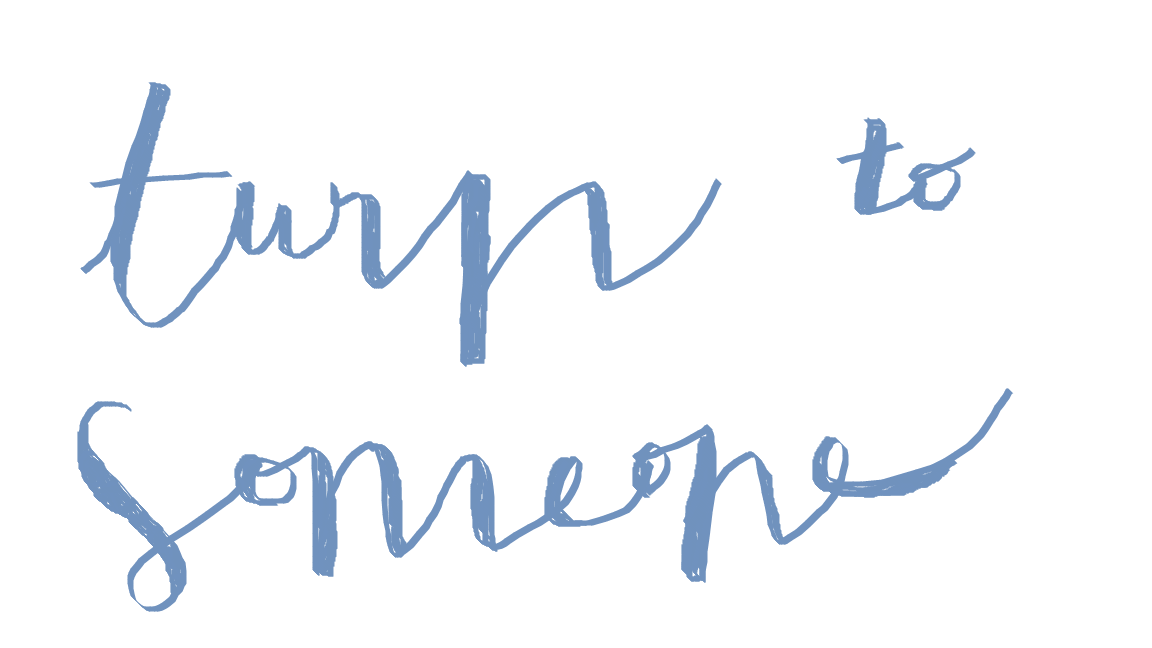 turn to
someone